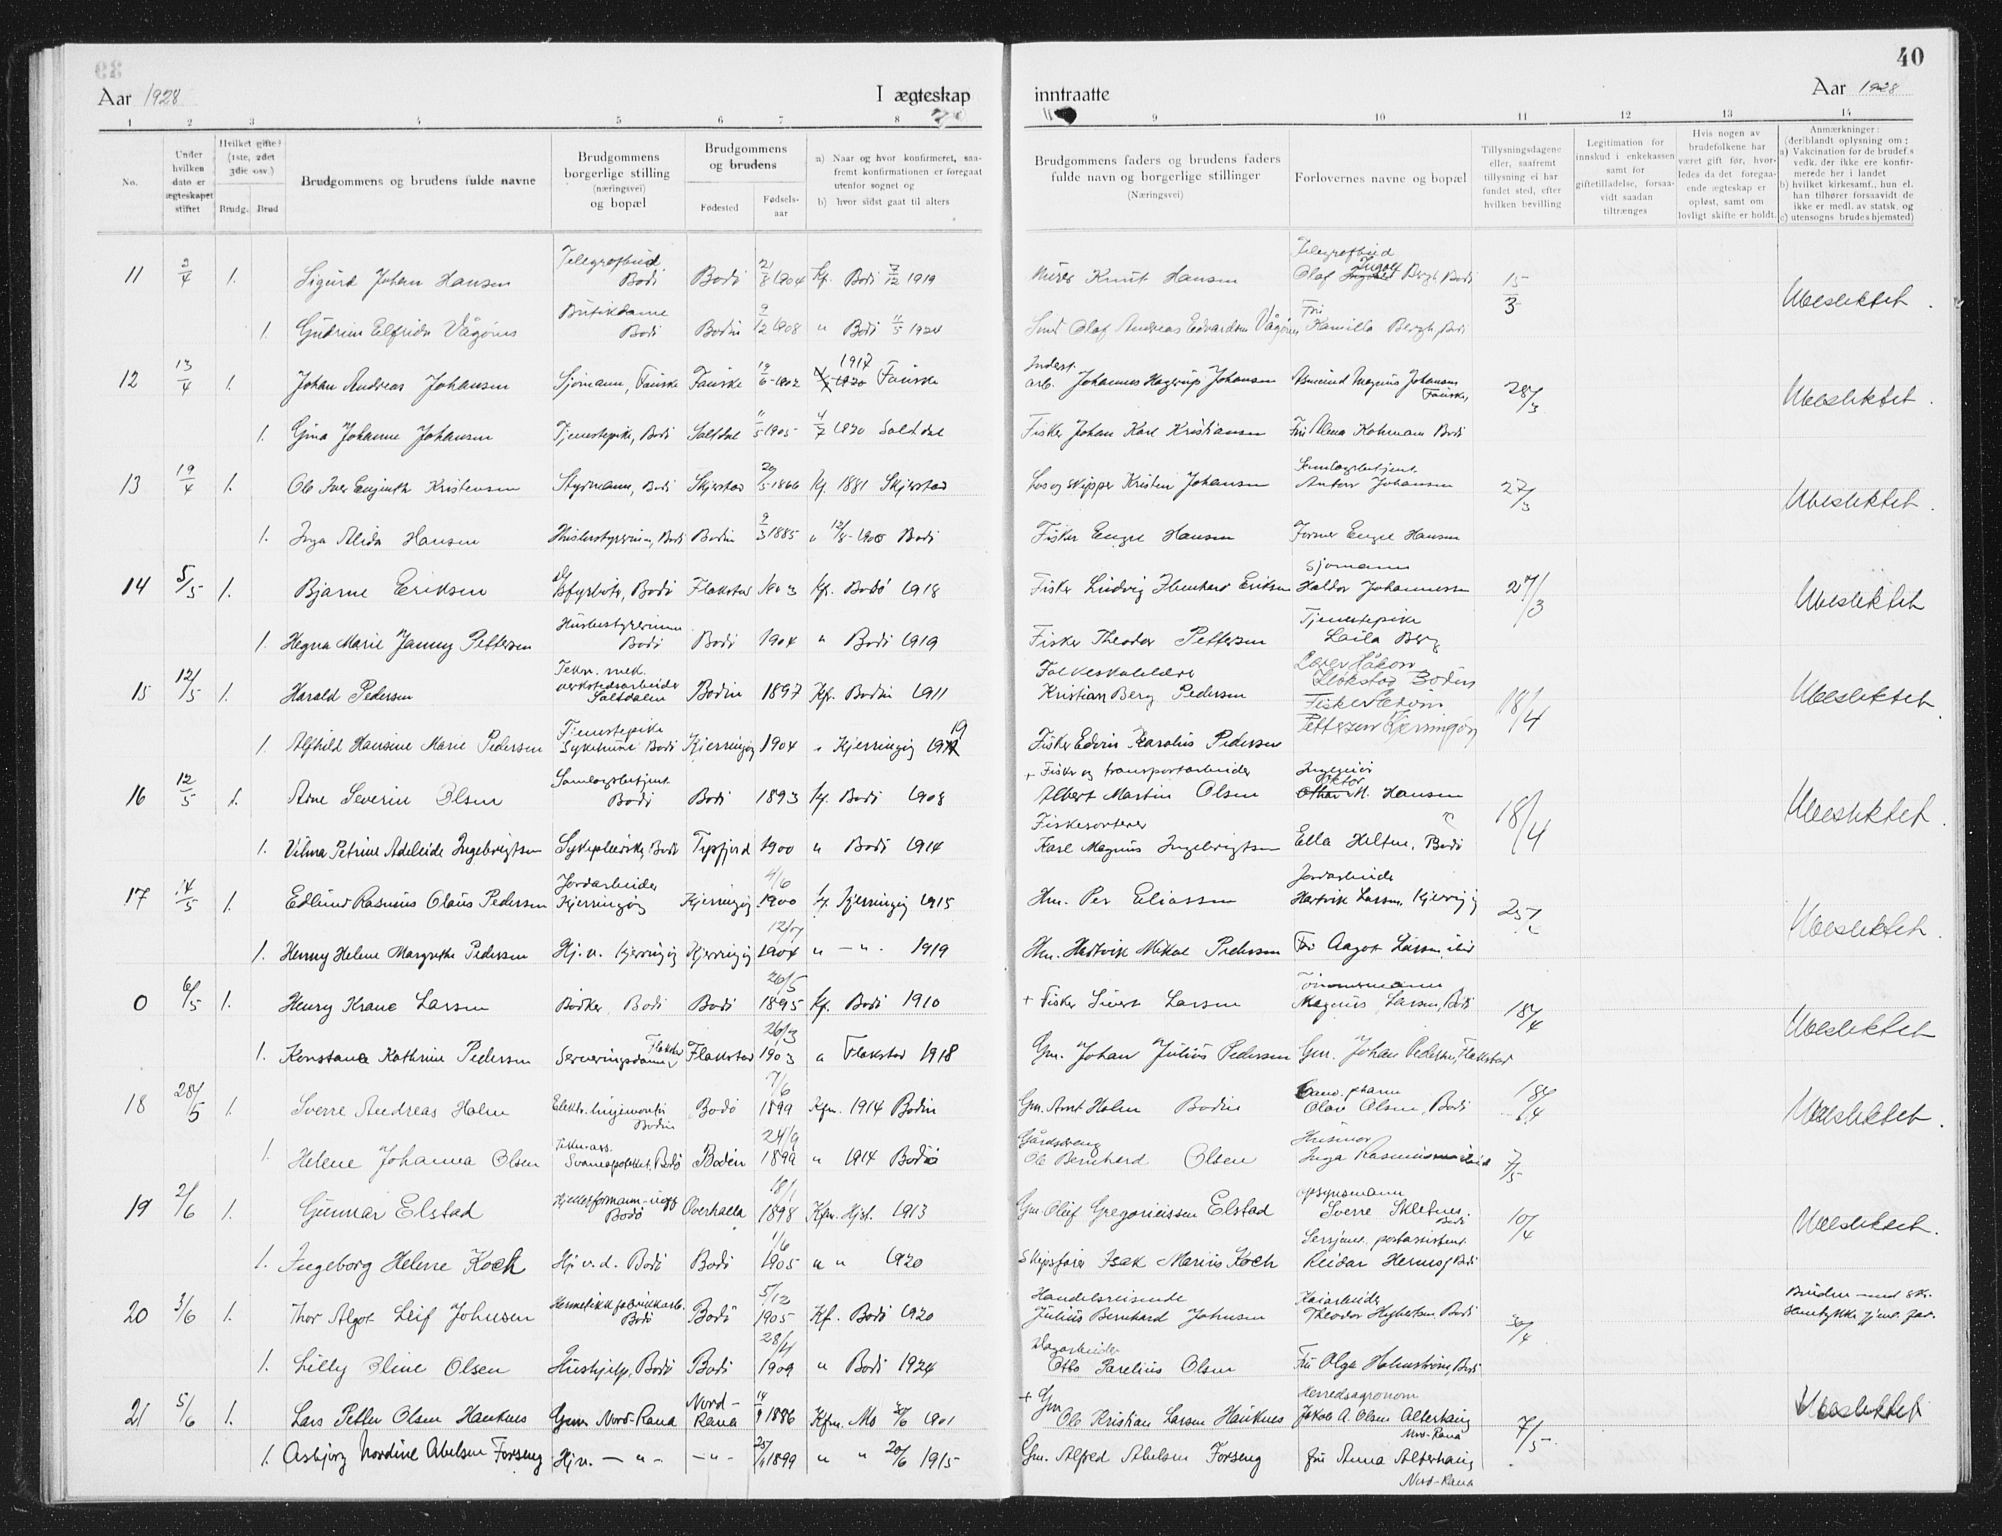 39
Aar 1928
I ægteskap
1 2 3 4 5 6 7 8
No.
Under hvilken dato er ægteskapet stiftet
Hvilket gifte? (1ste, 2det 3die osv.)
Brudg. Brud
Brudgommens og brudens fulde navne
Brudgommens borgerlige stilling (næringsvei) og bopæl
Brudgommens og brudens
Fødested
Fødsels-aar
a) Naar og hvor konfirmeret, saafremt konfirmationen er foregaat utenfor sognet og
b) hvor sidst gaat til alters
11 2/4 1. Sigurd Johan Hansen Telegrafbud. Bodø Bodø 21/8 1904 Kf. Bodø 7/12 1919
1. Gudrun Elfrida Vågønes Butikdame Bodø Bodin 9/12 1908 " Bodø 11/5 1924
12 13/4 1. Johan Andreas Johansen Sjømann, Fauske Fauske 19/6 1902 1917 Fauske
1. Gina Johanne Johansen Tjenestepike, Bodø Saltdal 11/5 1905 4/7 1920 Saltdal
13 19/4 1. Ole Iver Kristensen Styrmann, Bodø Skjerstad 20/5 1866 Kf. 1881 Skjerstad
1. Inga Alida Hansen Husbestyrerinne, Bodø Bodin 9/3 1885 " 12/8 1900 Bodø
14 5/5 1. Bjarne Eriksen Bodø Flakstad 1903 Kf. Bodø 1918
1. Hegna Marie Janny Pettersen Husbestyrerinne Bodø Bodø 1904 " Bodø 1919
15 12/5 1. Harald Pedersen Tekn. mek. verkstedsarbeider Saltdalen Bodin 1897 Kf. Bodin 1911
1. Alfhild Hansine Marie Pedersen Tjenestepike Sykehuset Bodø Kjerringøy 1904 " Kjerringøy 1919
16 12/5 1. Arne Severin Olsen Samlagsbetjent Bodø Bodø 1893 Kf. Bodø 1908
1. Vilma Petrine Adeleide Ingebrigtsen Sykepleierske, Bodø Tysfjord 1900 " Bodø 1914
17 14/5 1. Edlund Rasmus Olaus Pedersen Jordarbeider Kjerringøy Kjerringøy 4/6 1900 Kf. Kjerringøy 1915
1. Henny Helene Margrethe Pedersen Hj.v. Kjerringøy Kjerringøy 12/7 1904 " — " 1919
0 6/5 1. Henry Krane Larsen Bødker Bodø Bodø 26/5 1895 Kf. Bodø 1910
1. Konstance Kathrine Pedersen Serveringsdame, Flakstad Flakstad 26/3 1903 " Flakstad 1918
18 28/5 1. Sverre Andreas Holm Elektr. lysmontør Bodin Bodø 7/6 1899 Kfm. 1914 Bodin
1. Helene Johanna Olsen Svaneapoteket, Bodø Bodin 24/9 1899 " 1914 Bodø
19 2/6 1. Gunnar Elstad Bodø Overhalla 18/1 1898 Kfm. Hjst. 1913
1. Ingeborg Helene Koch Hj.v.d. Bodø Bodø 1/6 1905 " " 1920
20 3/6 1. Thor Algot Leif Johnsen Hermetikkfabrikkarb. Bodø Bodø 5/12 1905 Kf. Bodø 1920
1. Lilly Oline Olsen Hushjelp, Bodø Bodø 28/4 1909 " Bodø 1924
21 5/6 1. Lars Petter Olsen Hauknes Gmn Nord-Rana Nord-Rana 14/9 1886 Kfm. Mo 30/6 1901
1. Asbjørg Nordine Abelsen Forseng Hj.v. — " — — " — 25/11 1899 " " 20/6 1915
40
inntraatte
Aar 1928
9 10 11 12 13 14
Brudgommens faders og brudens faders fulde navn og borgerlige stillinger (Næringsvei)
Forlovernes navne og bopæl
Tillysningsdagene eller, saafremt tillysning ei har fundet sted, efter hvilken bevilling
Legitimation for innskud i enkekassen samt for giftetilladelse, forsaavidt saadan tiltrænges
Hvis nogen av brudefolkene har været gift før, hvorledes da det foregaaende ægteskap er opløst, samt om lovligt skifte er holdt.
Anmærkninger: (deriblandt oplysning om:
a) Vakcination for de brudef.s vedk. der ikke ere konfirmerede her i landet
b) hvilket kirkesamf., hun el. han tilhører forsaavidt de ikke er medl. av statsk. og
c) utensogns brudes hjemsted)
Murer Knut Hansen Telegrafbud Olaf Ingolf Bergh, Bodø 15/3 Ubeslektet.
Smed Olaf Andreas Edvardsen Vågønes Fru Kamilla Bergh, Bodø
Indust. arb. Johannes Hagerup Johansen Asmund Magnus Johansen Fauske, 28/3 Ubeslektet.
Fisker Johan Karl Kristiansen Fru Alma Kohmann Bodø
Los og skipper Kristen Johansen Samlagsbetjent Anton Johansen 27/3 Ubeslektet.
Fisker Engel Hansen Former Engel Hansen
Fisker Ludvig Eriksen Sjømann Haldor Johannessen 27/3 Ubeslektet
Fisker Theodor Pettersen Tjenestepike Laila Berg
Folkeskolelærer Kristian Berg Pedersen Lærer Håkon Løkstad Bodin 18/4 Ubeslektet.
Fisker Edvin Karolius Pedersen Fisker Edvin Pettersen Kjerringøy
+ Fisker og transportarbeider Albert Martin Olsen Ingeniør Oktor M. Hansen 18/4 Ubeslektet.
Fiskesorterer Karl Magnus Ingebrigtsen Ella Heltne, Bodø
Hm. Per Eliassen Jordarbeider Hartvik Larsen, Kjerringøy 25/ Ubeslektet.
Hm. Hartvik Mikal Pedersen Fru Aagot Larsen, ibid
+ Fisker Sivert Larsen Tømmermann Magnus Larsen, Bodø 18/4 Ubeslektet
Gm. Johan Julius Pedersen Gm. Johan Pedersen, Flakstad
Gm. Arnt Holm Bodin Cand. pharm Olav Olsen, Bodø 18/4 Ubeslektet.
Gårdsdreng Ole Bernhard Olsen Husmor Inga Rasmussen 7/5
Gm. Oluf Gregoriussen Elstad opsynsmann Sverre Sklettnes. Bodø 10/4 Ubeslektet.
Skipsfører Isak Marius Koch Sersjant, postassistent. Reidar Hernes, Bodø
Handelsreisende Julius Bernhard Johnsen Kaiarbeider Theodor Hybertsen, Bodø 30/4 Bruden — med sk. samtykke
Dagarbeider Otto Parelius Olsen Fru Olga Holmstrøm, Bodø
+ Gm Ole Kristian Larsen Hauknes Herredsagronom Jakob A. Olsen Alterhaug Nord-Rana 7/5 Ubeslektet
Gm. Alfred Abelsen Forseng fru Anna Alterhaug Nord-Rana